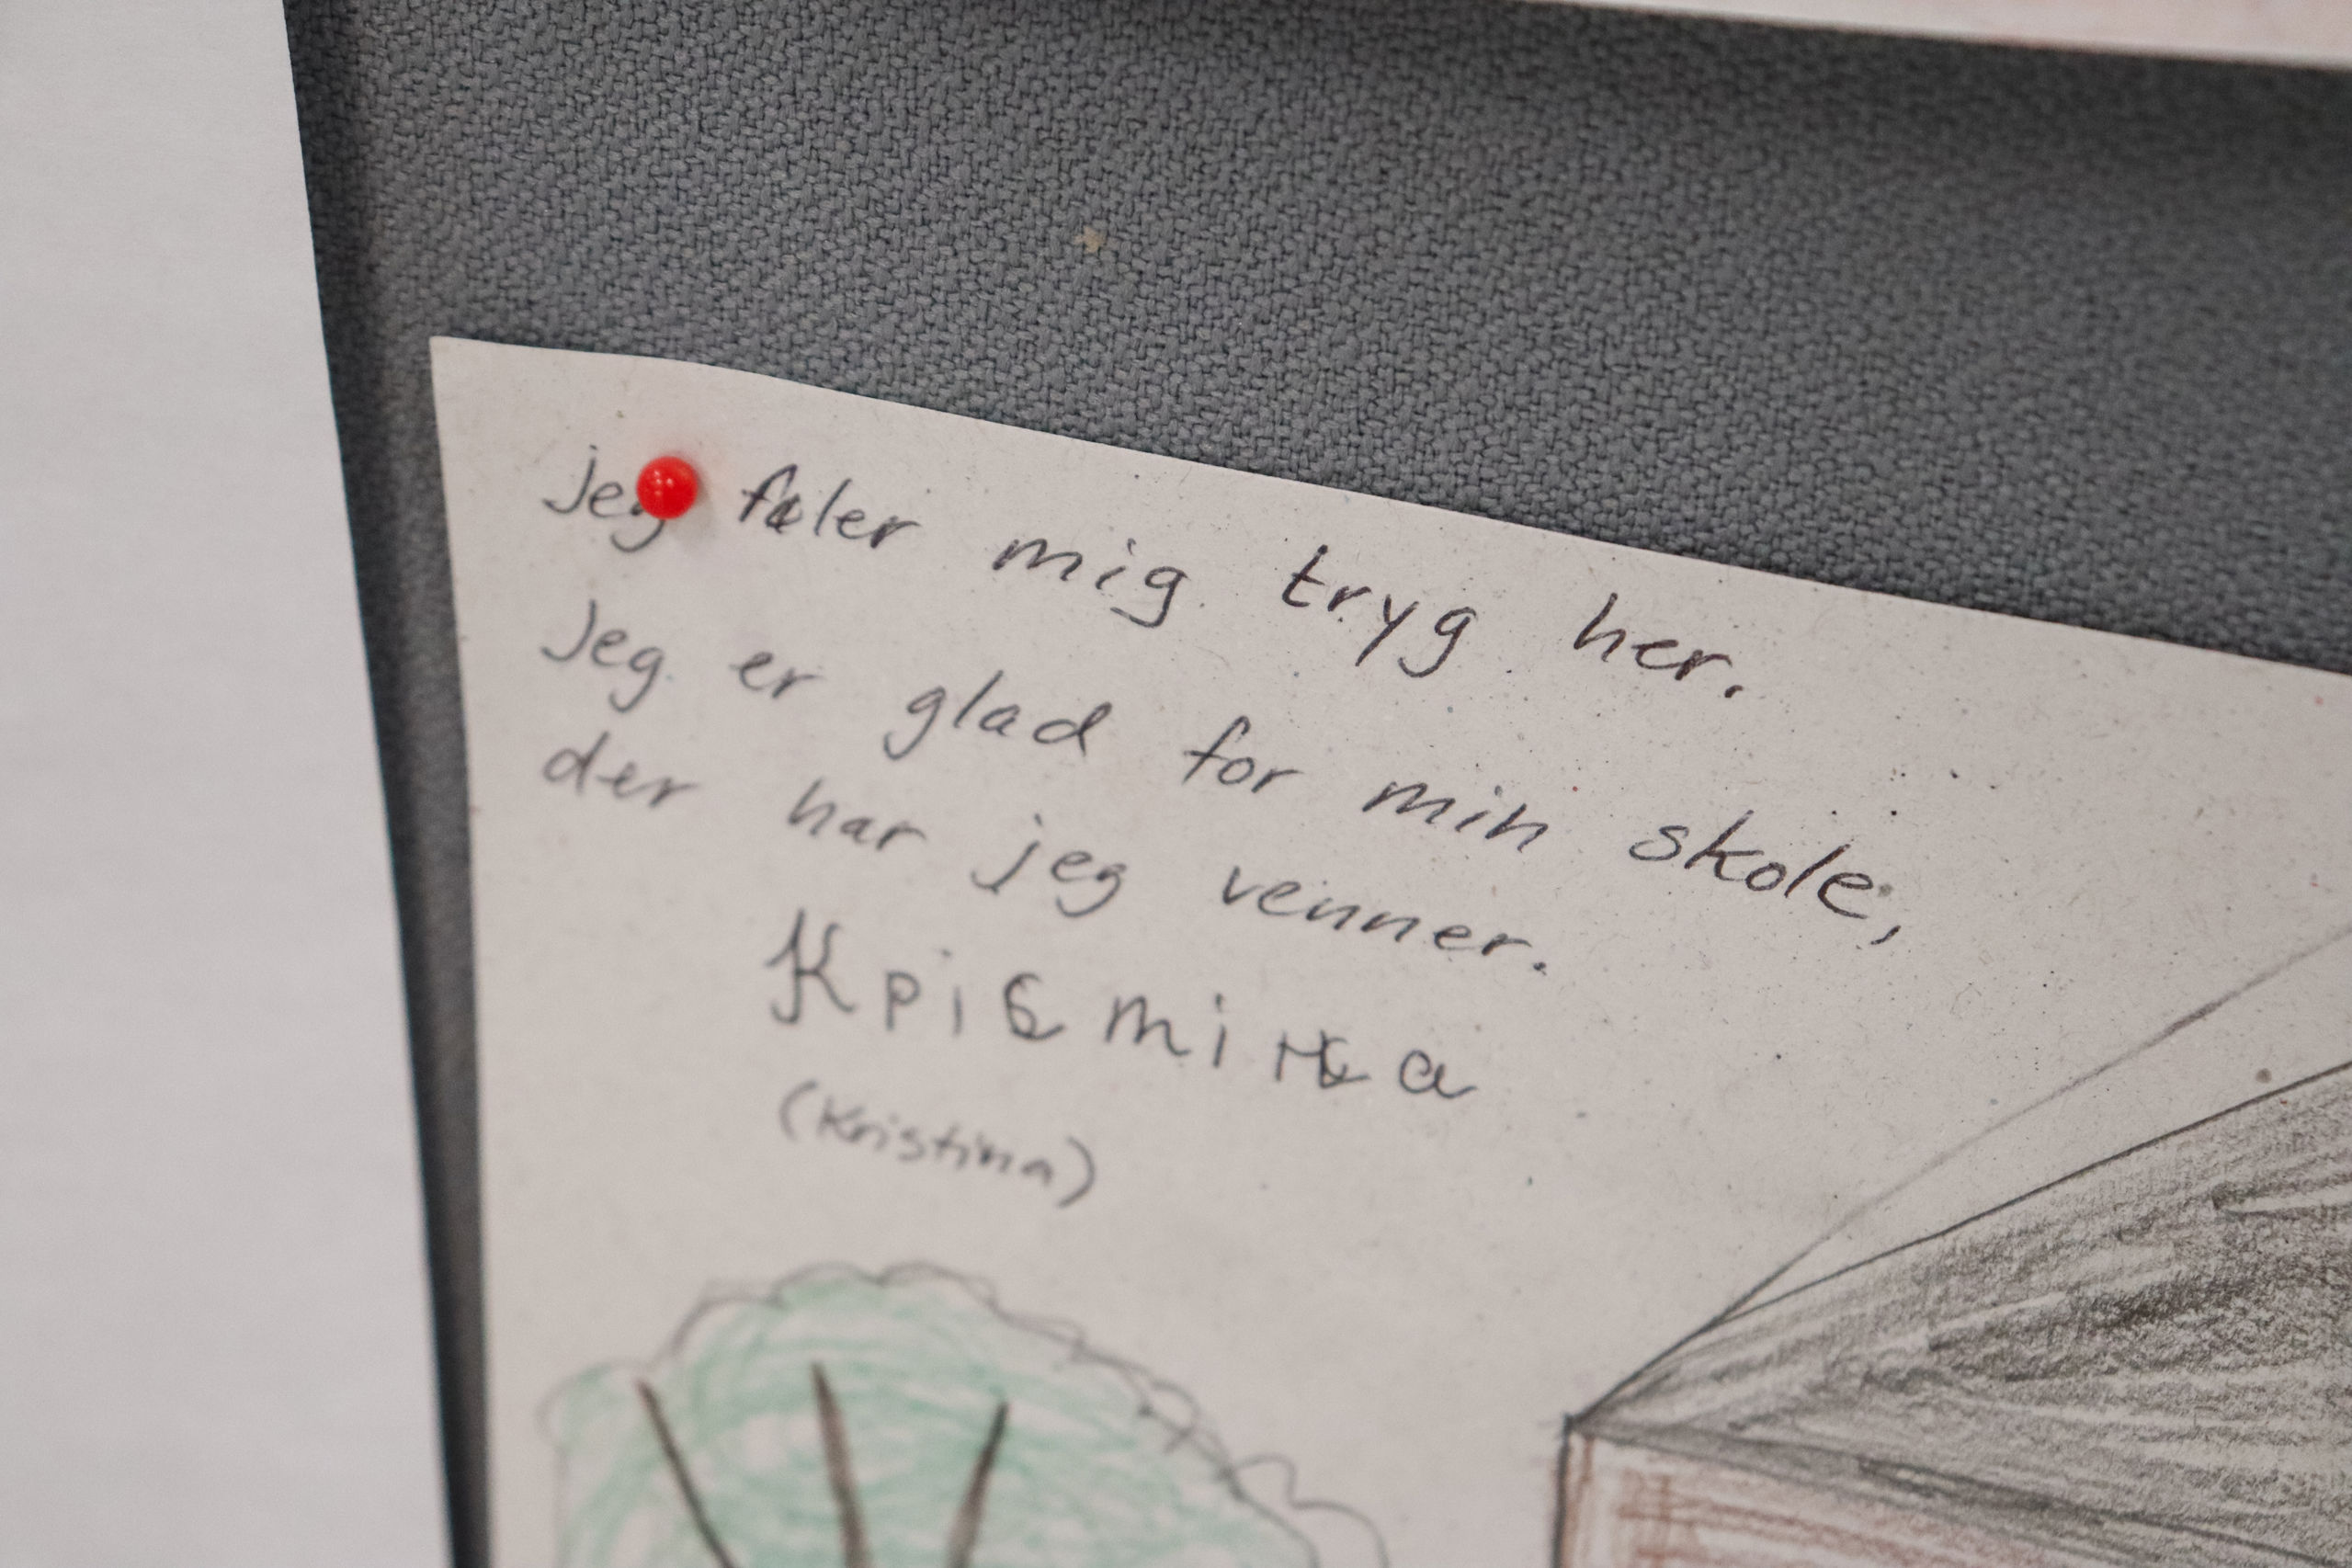 Jeg føler mig tryg her.
Jeg er glad for min skole,
der har jeg venner.
Крістіна
(Kristina)